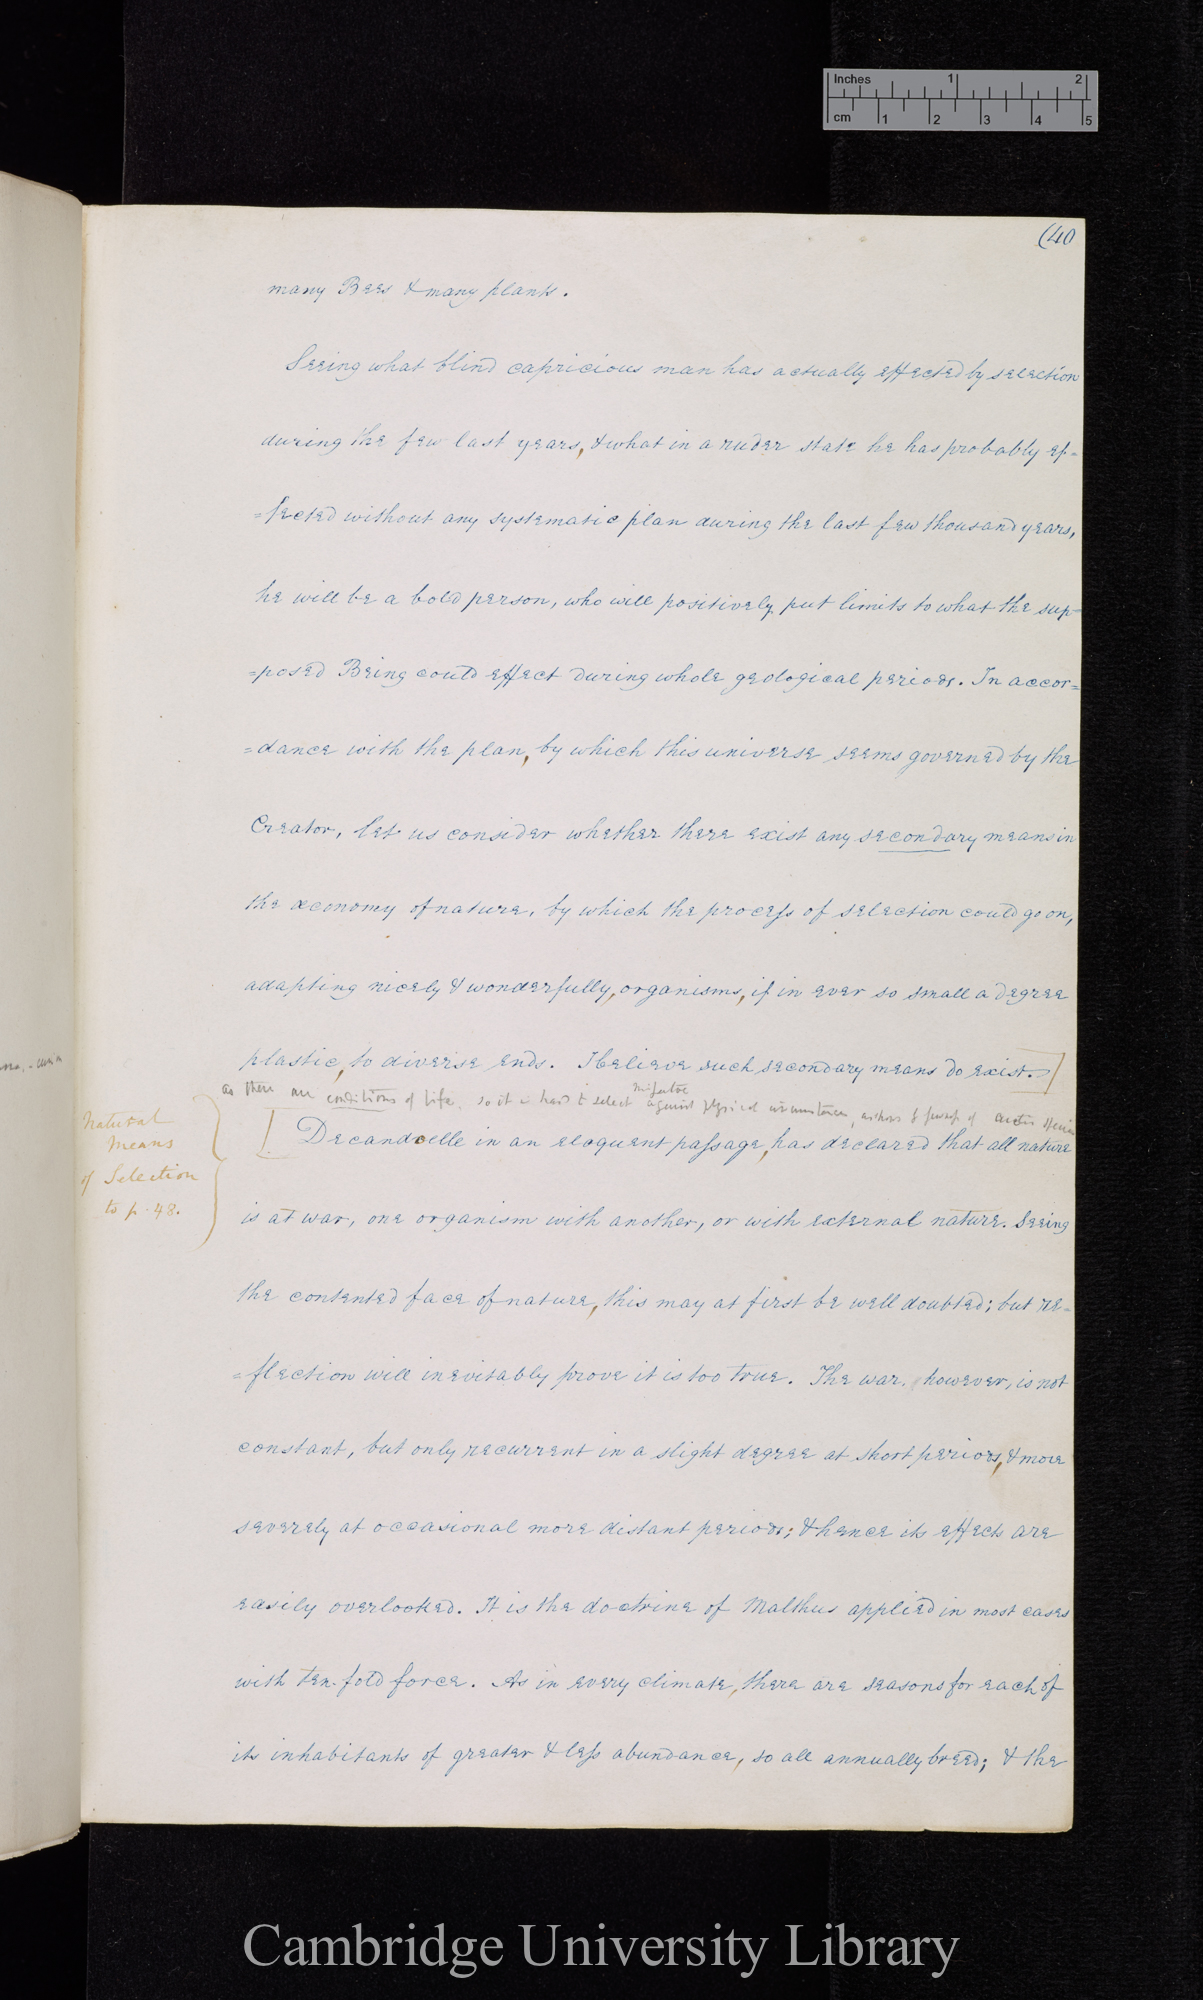 Inches 1 2
cm 1 2 3 4 5
(40
many Bees & many plants.
Seeing what blind capricious man has actually effected by selection
during the few last years, & what in a ruder state he has probably ef=
=fected without any systematic plan during the last few thousand years,
he will be a bold person, who will positively put limits to what the sup=
=posed Being could effect during whole geological periods. In accor=
=dance with the plan, by which this universe seems governed by the
Creator, let us consider whether there exist any secondary means in
the œconomy of nature, by which the process of selection could go on,
adapting nicely & wonderfully, organisms, if in ever so small a degree
plastic, to diverse ends. I believe such secondary means do exist.]
as there are conditions of life. so it is hard to select against physical circumstances
Natural
Means
of Selection
to p. 48.
[Decandoelle in an eloquent passage, has declared that all nature
is at war, one organism with another, or with external nature. Seeing
the contented face of nature, this may at first be well doubted; but re=
=flection will inevitably prove it is too true. The war, however, is not
constant, but only recurrent in a slight degree at short periods, & more
severely at occasional more distant periods; & hence its effects are
easily overlooked. It is the doctrine of Malthus applied in most cases
with ten-fold force. As in every climate, there are seasons for each of
its inhabitants of greater & less abundance, so all annually breed; & the
Cambridge University Library